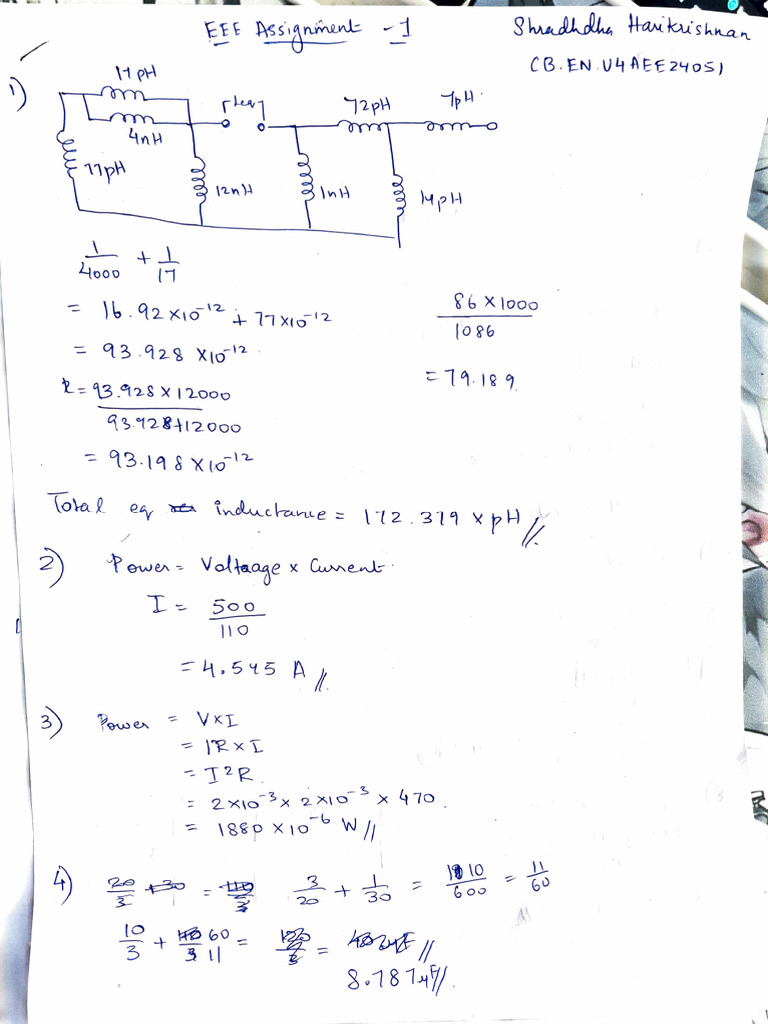 EEE Assignment - 1
Shradhdha Harikrishnan
CB.EN.U4AEE24051
1)
17pH
4nH
77pH
Leq
12nH
1nH
72pH
7pH
14pH
1/4000 + 1/17
= 16.92 × 10⁻¹² + 77 × 10⁻¹²
= 93.928 × 10⁻¹²
= 93.928 × 12000 / 93.928 + 12000
= 93.198 × 10⁻¹²
86 × 1000 / 1086
= 79.189
Total eq inductance = 172.379 × pH //
2) Power = Voltaage × Current.
I = 500 / 110
= 4.545 A //
3) Power = V×I
= IR × I
= I²R
= 2×10⁻³ × 2×10⁻³ × 470
= 1880 × 10⁻⁶ W //
4) 3/20 + 1/30 = 110/600 = 11/60
10/3 + 60/11 = 8.787μF //